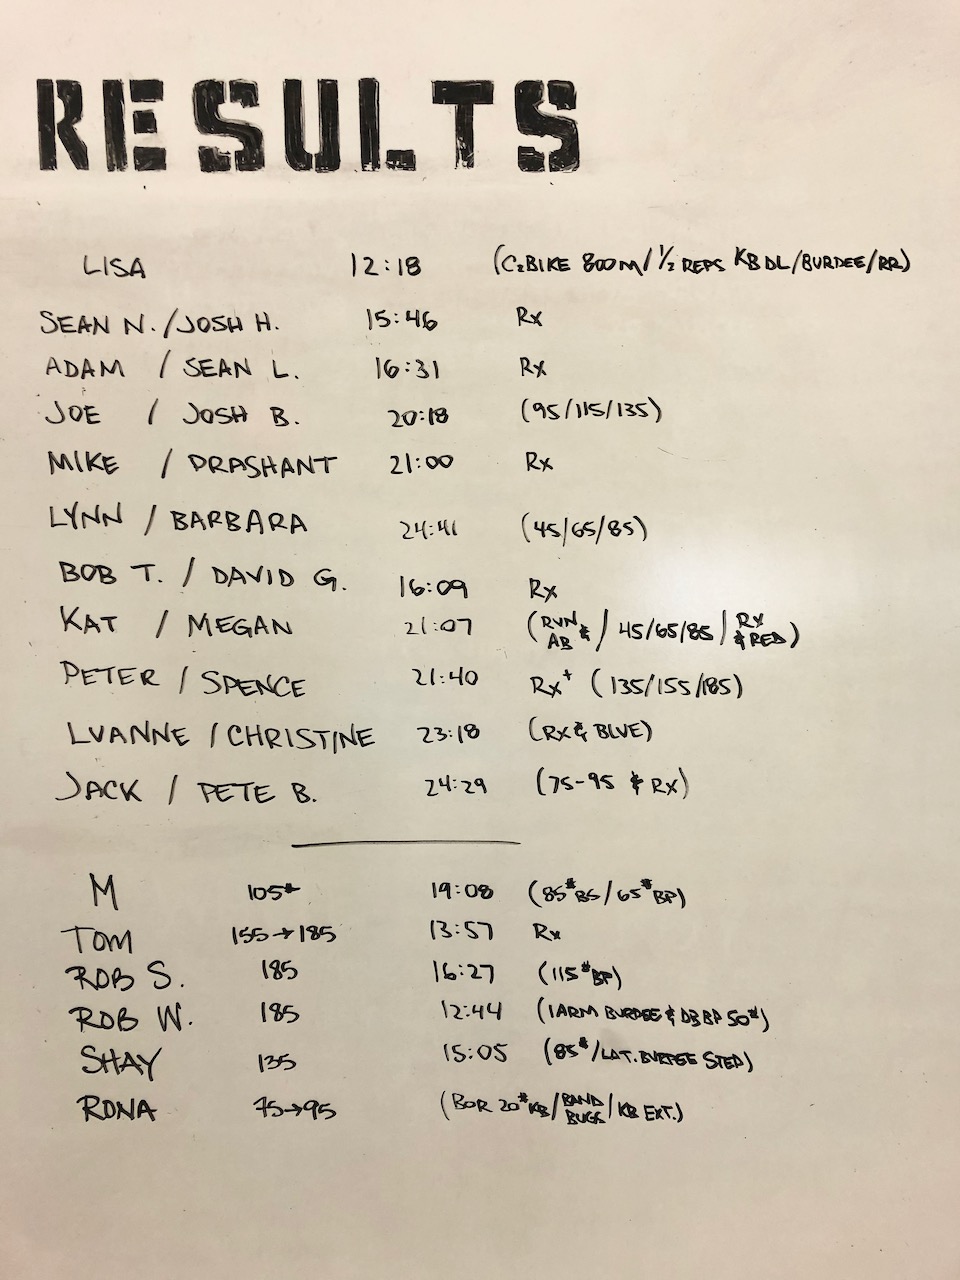 RESULTS
LISA 12:18 (C2BIKE 800M/ 1/2 REPS KB DL/BURPEE/RR)
SEAN N./JOSH H. 15:46 Rx
ADAM / SEAN L. 16:31 Rx
JOE / JOSH B. 20:18 (95/115/135)
MIKE / PRASHANT 21:00 Rx
LYNN / BARBARA 24:41 (45/65/85)
BOB T. / DAVID G. 16:09 Rx
KAT / MEGAN 21:07 (RUN & AB / 45/65/85 / Rx & RED)
PETER / SPENCE 21:40 Rx+ (135/155/185)
LUANNE / CHRISTINE 23:18 (Rx & BLUE)
JACK / PETE B. 24:29 (75-95 & Rx)
M 105# 19:08 (85# BS/65# BP)
TOM 155→185 13:57 Rx
ROB S. 185 16:27 (115# BP)
ROB W. 185 12:44 (1ARM BURPEE & DB BP 50#)
SHAY 135 15:05 (85#/LAT. BURPEE STEP)
RONA 75→95 (BOR 20# KB/BAND BUGS/KB EXT.)